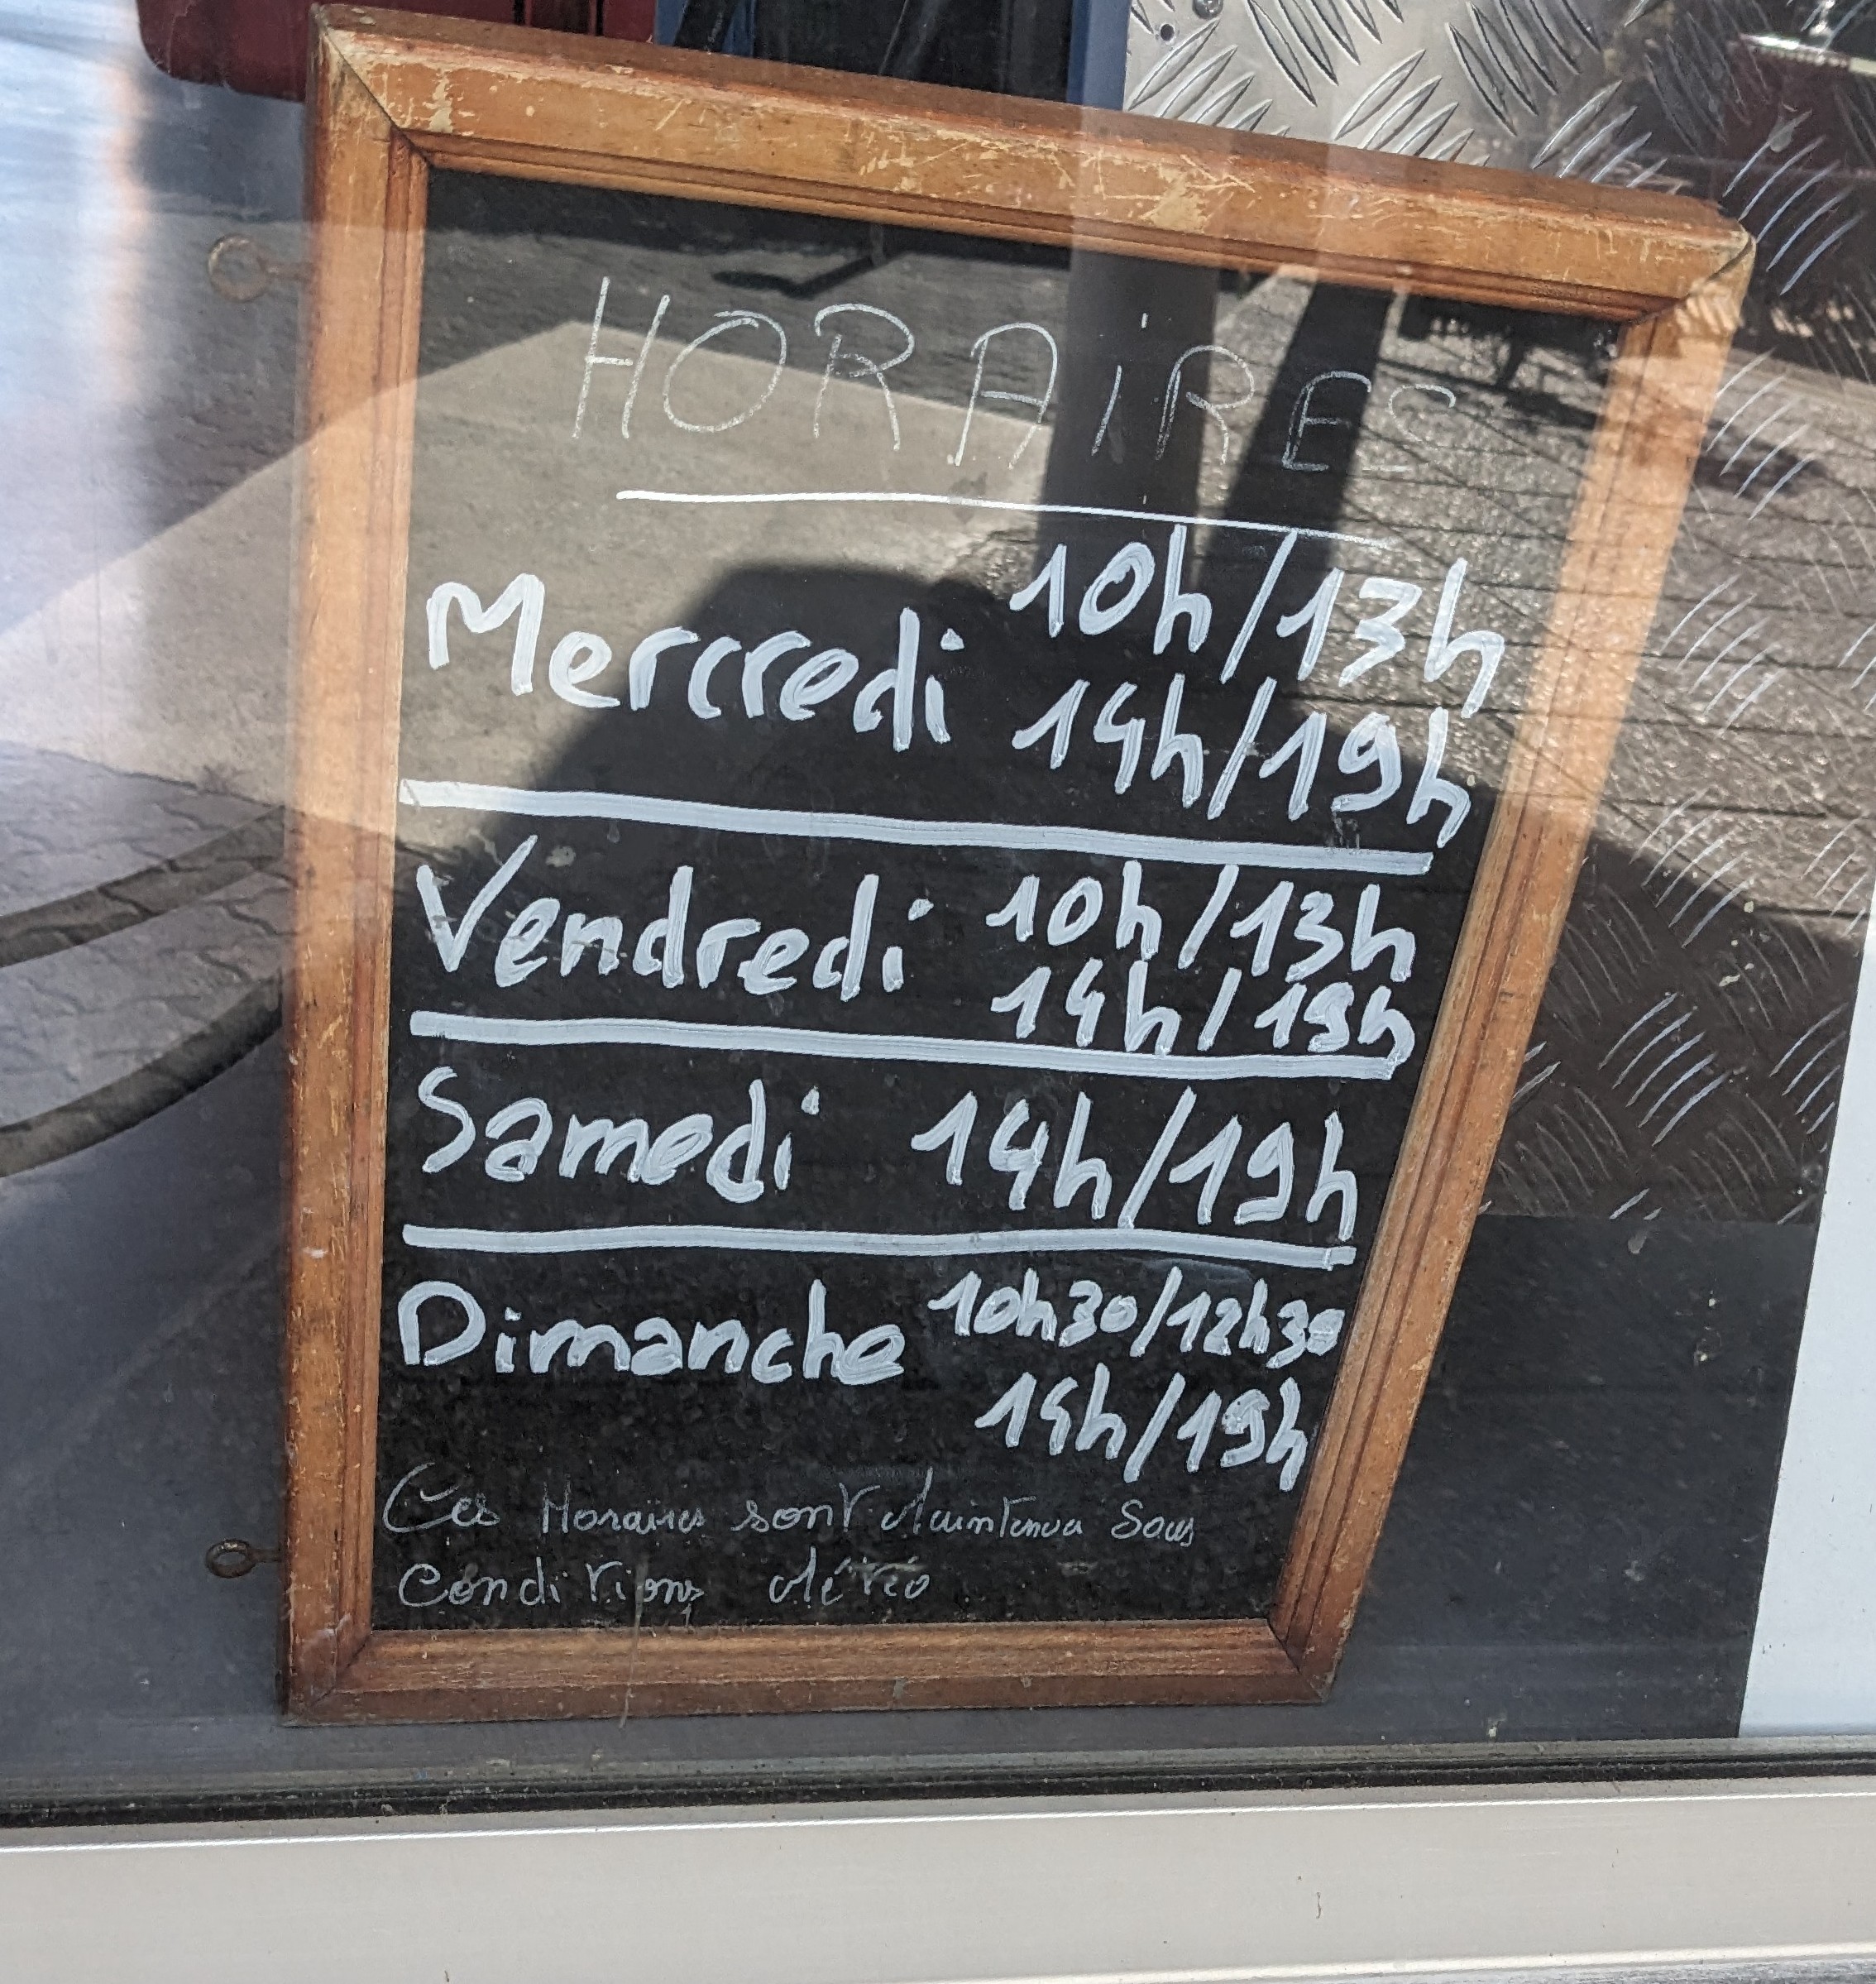 HORAiRES
Mercredi 10h/13h
14h/19h
Vendredi 10h/13h
14h/19h
Samedi 14h/19h
Dimanche 10h30/12h30
14h/19h
Ces Horaires sont Maintenu Sous
Conditions Météo